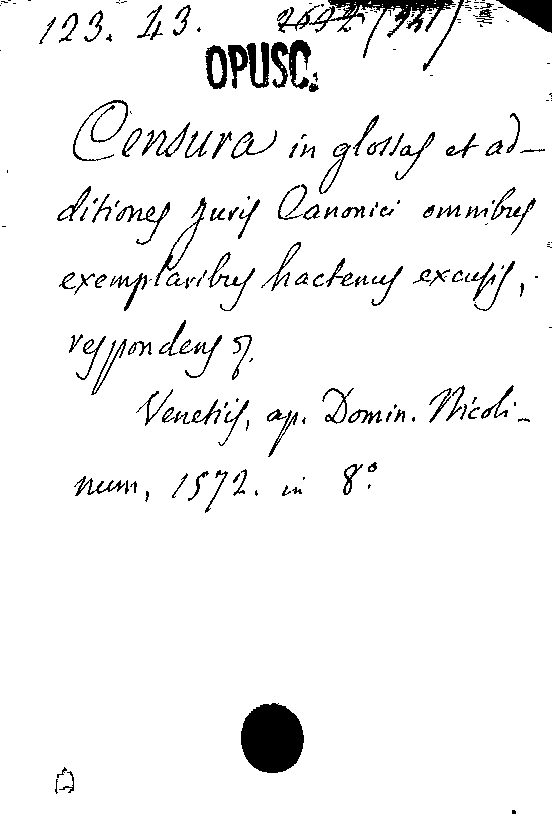 123. 43. 2692 (331)
OPUSC.
Censura in glossas et ad-
ditiones Juris Canonici omnibus
exemplaribus hactenus excusis,
respondens
Venetiis, ap. Domin. Nicoli-
num, 1572. in 8.º